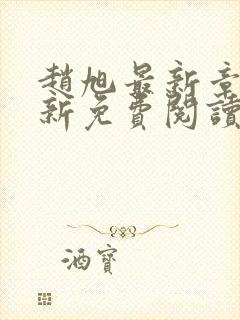 趙旭最新章
新免費閱讀
酒寶